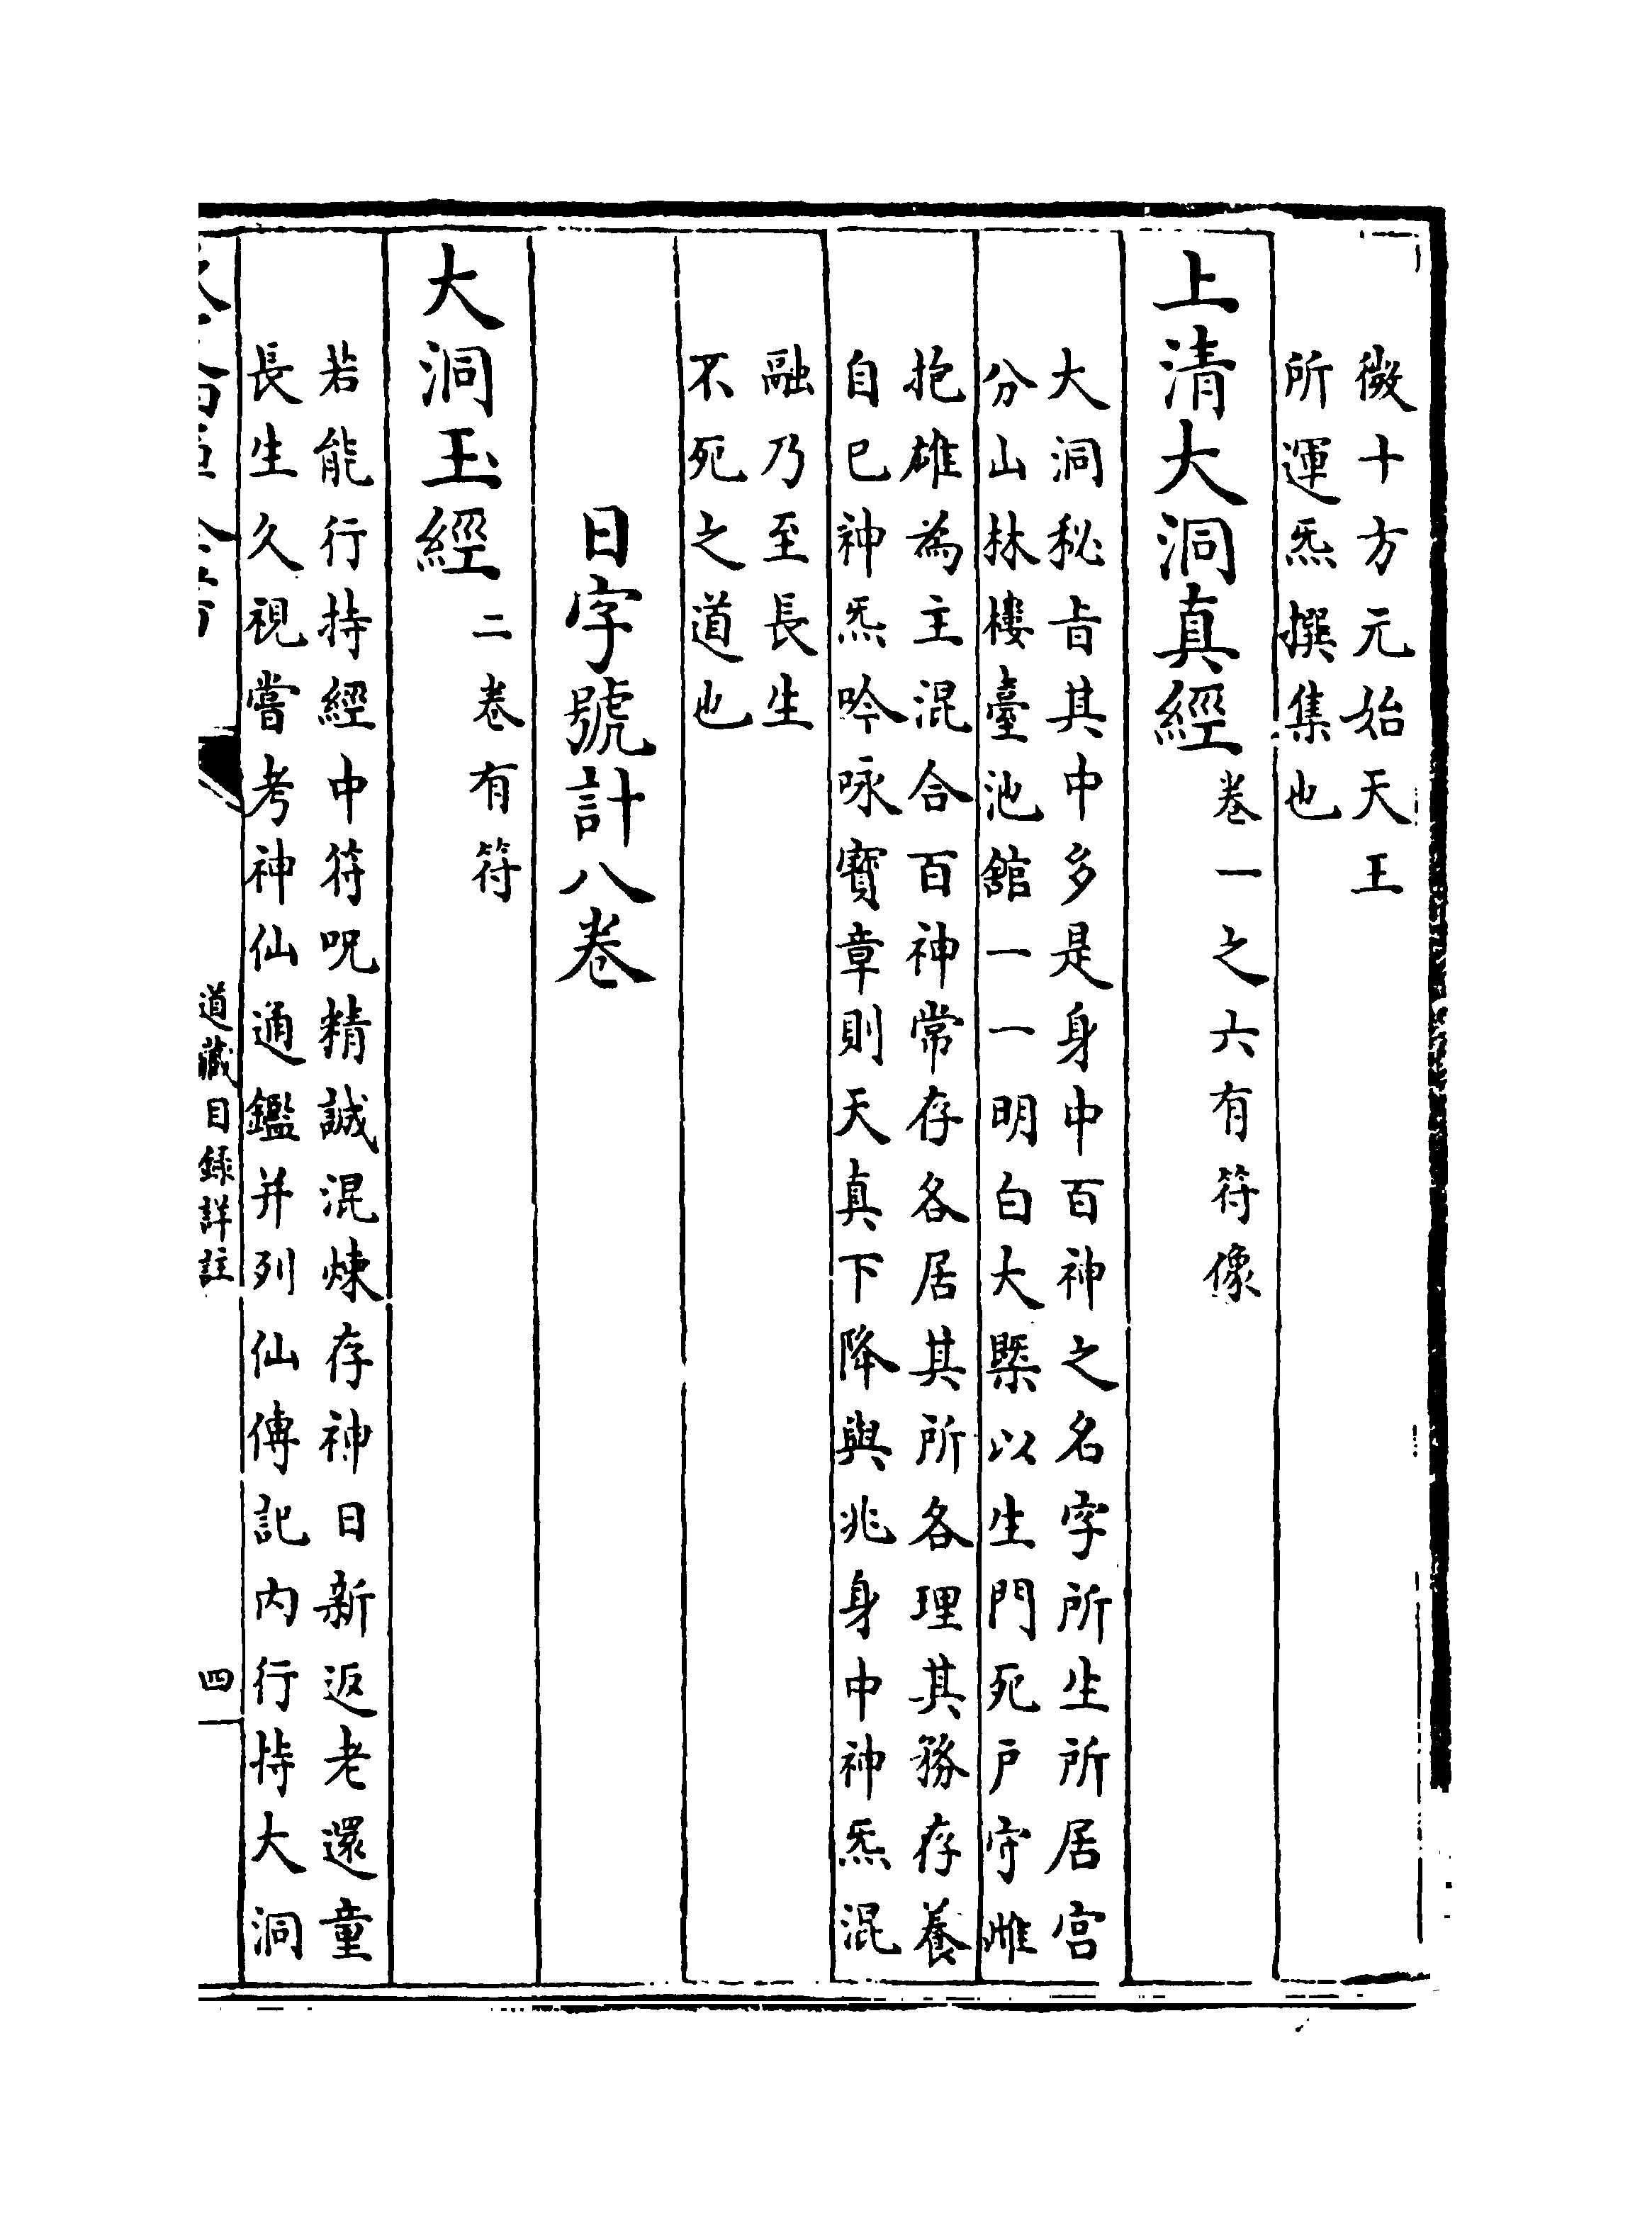 微十方元始天王
所運炁撰集也
上清大洞真經卷一之六有符像
大洞秘旨其中多是身中百神之名字所生所居宮
分山林樓臺池舘一一明白大槩以生門死戶守雌
抱雄為主混合百神常存各居其所各理其務存養
自已神炁吟咏寳章則天真下降與兆身中神炁混
融乃至長生
不死之道也
日字號計八卷
大洞玉經二卷有符
若能行持經中符呪精誠混煉存神日新返老還童
長生久視嘗考神仙通鑑并列仙傳記内行持大洞
道藏目録詳註
四